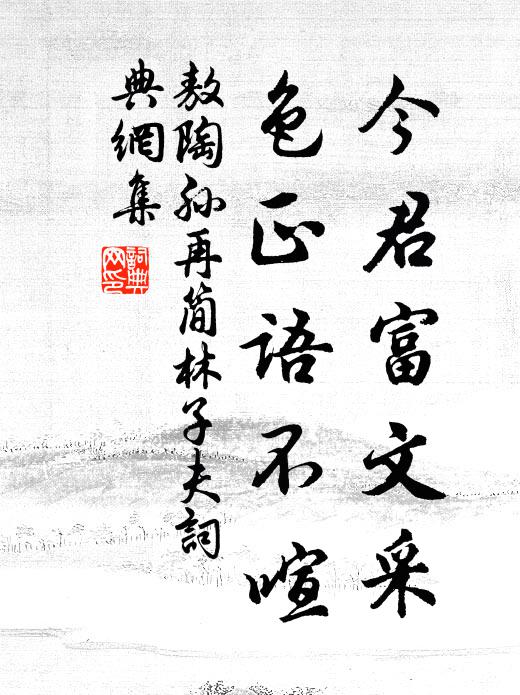 今君富文采
色正语不喧
敖陶孙再简林子夫词
典網集
詞典
网印